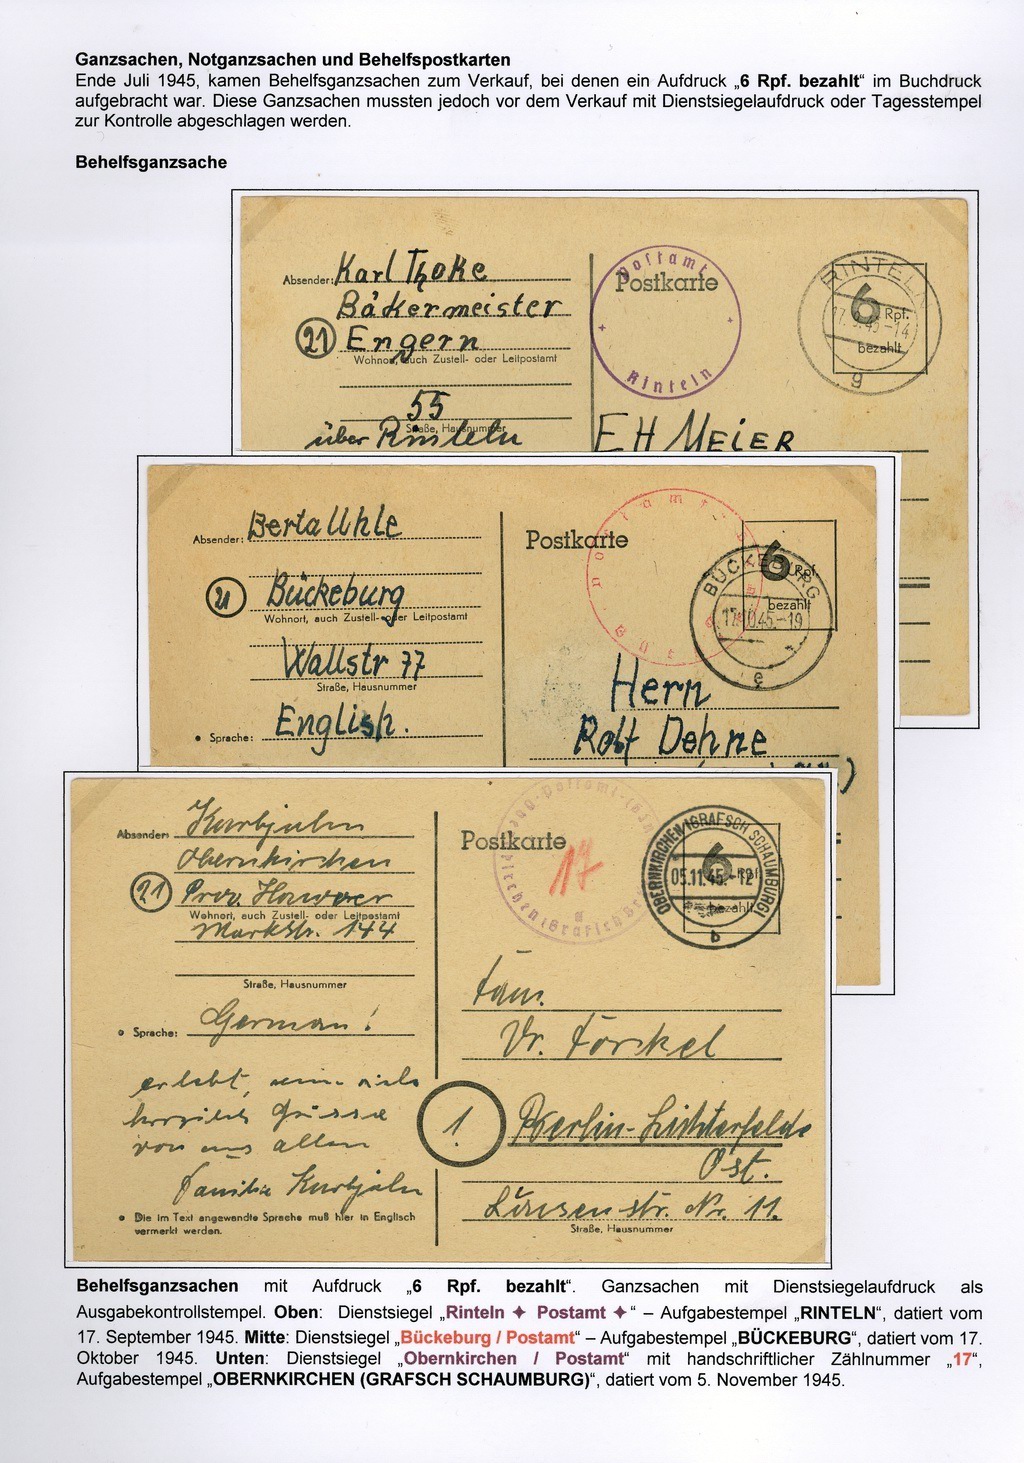 Ganzsachen, Notganzsachen und Behelfspostkarten
Ende Juli 1945, kamen Behelfsganzsachen zum Verkauf, bei denen ein Aufdruck „6 Rpf. bezahlt“ im Buchdruck
aufgebracht war. Diese Ganzsachen mussten jedoch vor dem Verkauf mit Dienstsiegelaufdruck oder Tagesstempel
zur Kontrolle abgeschlagen werden.
Behelfsganzsache
Absender: Karl Thoke
Bäkermeister
21 Engern
Wohnort, auch Zustell- oder Leitpostamt
55
Straße, Hausnummer
über Rinteln
Postkarte
Postamt
Rinteln
RINTELN
6 Rpf.
bezahlt
g
EH MEIER
Absender: Berta Uhle
21 Bückeburg
Wohnort, auch Zustell- oder Leitpostamt
Wallstr 77
Straße, Hausnummer
• Sprache: English.
Postkarte
BÜCKEBURG
6 Rpf.
bezahlt
17.10.45.-19
e
Herrn
Rolf Dehne
Absender: Karbjuhn
Obernkirchen
21 Prov. Hannover
Wohnort, auch Zustell- oder Leitpostamt
Markstr. 144
Straße, Hausnummer
• Sprache: German!
erlebt,
Grüsse
von uns allen
Familie Karbjuhn
• Die im Text angewandte Sprache muß hier in Englisch
vermerkt werden.
Postkarte
17
OBERNKIRCHEN (GRAFSCH SCHAUMBURG)
6 Rpf.
05.11.45.-12
bezahlt
b
Fam.
Förckel
1 Berlin-Lichterfelde
Ost.
str. Nr. 11.
Straße, Hausnummer
Behelfsganzsachen mit Aufdruck „6 Rpf. bezahlt“. Ganzsachen mit Dienstsiegelaufdruck als
Ausgabekontrollstempel. Oben: Dienstsiegel „Rinteln ✦ Postamt ✦“ – Aufgabestempel „RINTELN“, datiert vom
17. September 1945. Mitte: Dienstsiegel „Bückeburg / Postamt“ – Aufgabestempel „BÜCKEBURG“, datiert vom 17.
Oktober 1945. Unten: Dienstsiegel „Obernkirchen / Postamt“ mit handschriftlicher Zählnummer „17“,
Aufgabestempel „OBERNKIRCHEN (GRAFSCH SCHAUMBURG)“, datiert vom 5. November 1945.